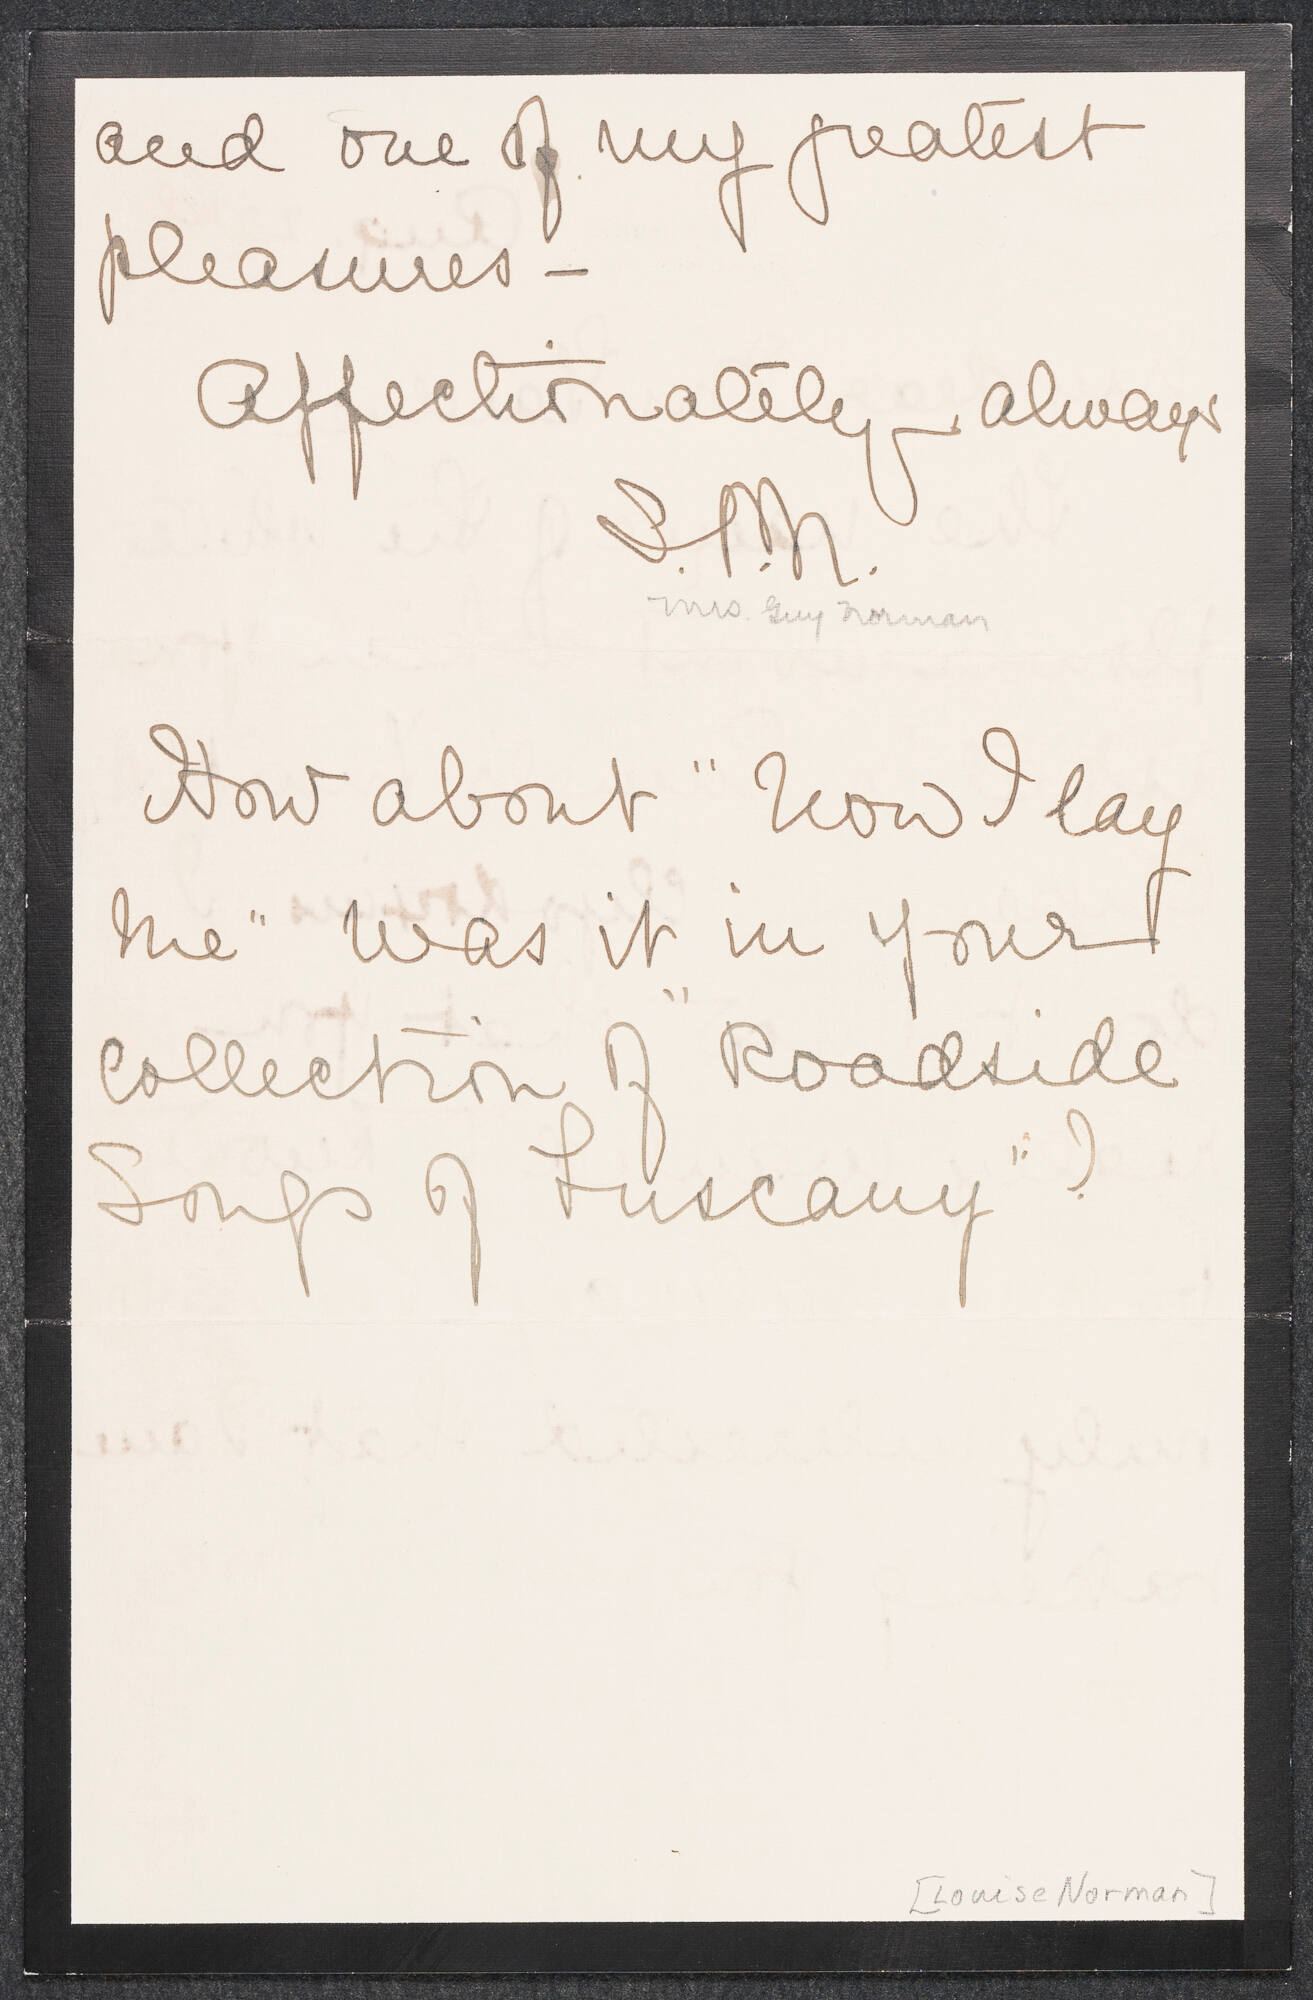 and one of my greatest
pleasures –
Affectionately always
L. P. N.
Mrs. Guy Norman
How about "Now I lay
me" was it in your
collection of "Roadside
Songs of Tuscany"?
[Louise Norman]